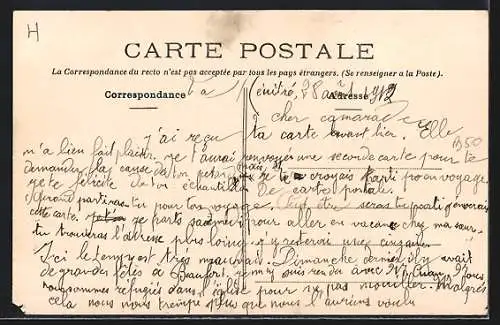 H
CARTE POSTALE
La Correspondance du recto n'est pas acceptée par tous les pays étrangers. (Se renseigner à la Poste).
Correspondance
Adresse
La Ménitré, 28 août 1912
cher camarade
J'ai reçu ta carte avant hier. Elle
m'a bien fait plaisir. je t'aurai envoyé une seconde carte pour te
demander la cause de ton mais je te croyais parti pour voyage.
je te félicite de ton échantillon de cartes postales
Quand partiras tu pour ton voyage. Peut être seras tu parti quand
cette carte. je pars samedi pour aller en vacances chez ma sœur.
tu trouveras l'adresse plus loin. j'y resterai une
Ici le temps est très mauvais. Dimanche dernier il y avait
de grandes fêtes à Beaufort, je m'y suis rendu avec Mr nous
nous sommes réfugiés dans l'église pour ne pas mouiller. Malgrés
cela nous nous trempé plus que nous l'aurions voulu
1350